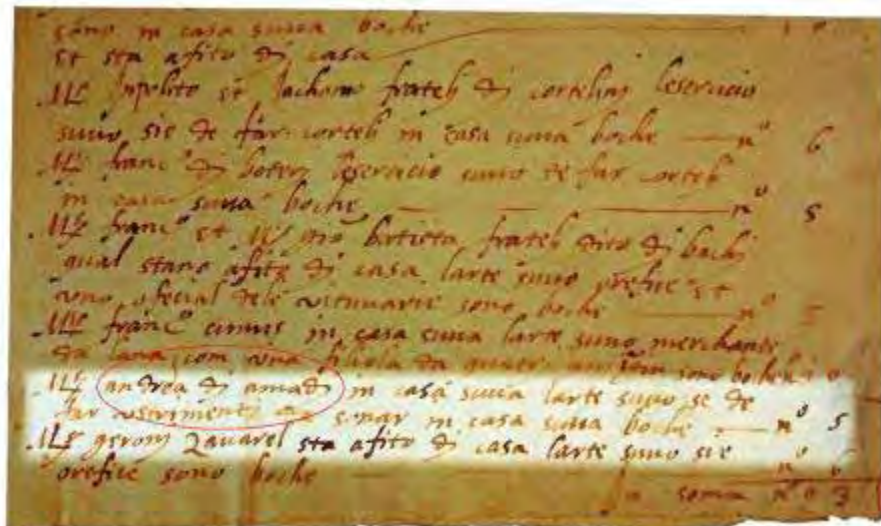 sono in casa suua boche
et sta afito di casa
Mr Jpolito et Jachomo frateli di cortelini lesercicio
suuo sie de far corteli in casa suua boche no 6
Mr franco di boteri lesercicio suuo de far corteli
in casa suua boche no 5
Mr franco et Mr gio batista frateli dito di bochi
qual stano afito di casa larte suuo orefice et
uno oficial dele vituuarie sono boche no
Mr franco in casa suua larte suuo merchante
da lana com una sono boche
Mr andrea di amadi in casa suua larte suuo se de
far ustrimenti da sonar in casa suua boche no 5
Mr geroni Zauarel sta afito di casa larte suuo sie
orefice sono boche no 6
soma no